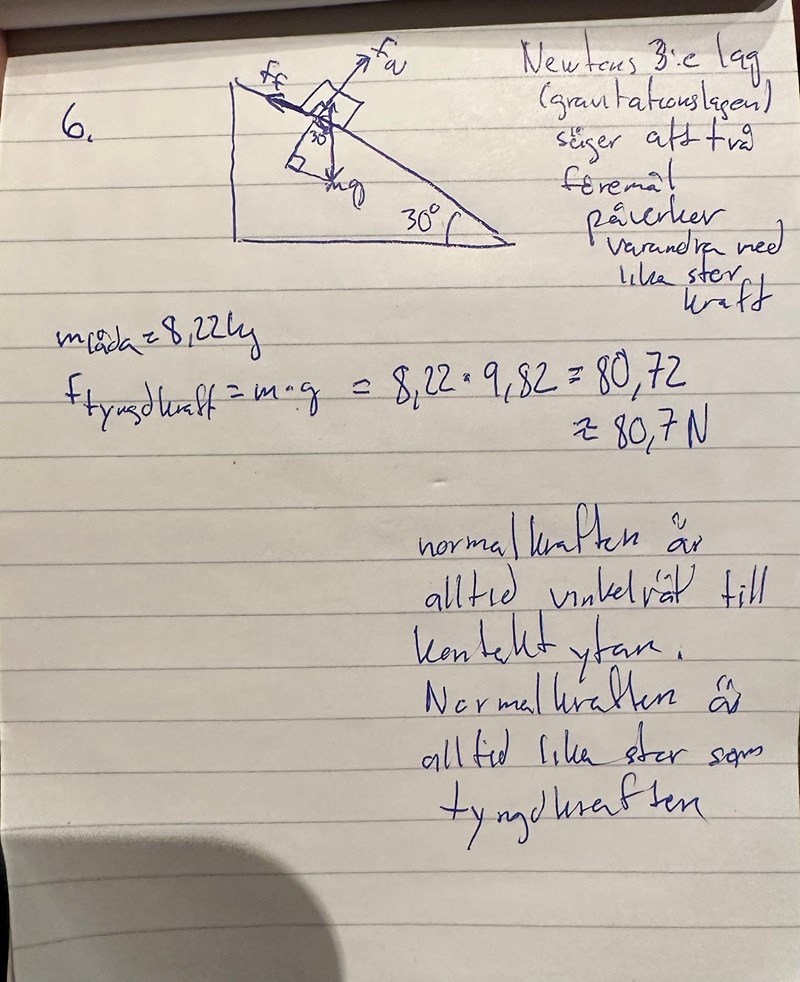 6.
Ff
Fa
30
mg
30°
Newtons 3:e lag
(gravitationslagen)
säger att två
föremål
påverker
varandra med
lika stor
kraft
mlåda = 8,22kg
Ftyngdkraft = m·g = 8,22·9,82 = 80,72
≈ 80,7 N
normalkraften är
alltid vinkelrät till
kontakt ytan.
Normalkraften är
alltid lika stor som
tyngdkraften